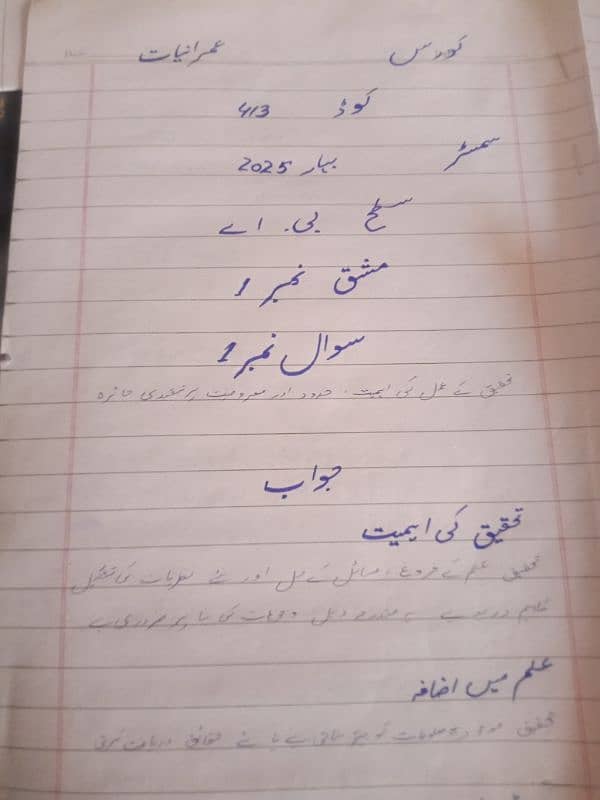 کورس عمرانیات
کوڈ 413
سمسٹر بہار 2025
سطح بی۔ اے
مشق نمبر 1
سوال نمبر 1
تحقیق کے عمل کی اہمیت، حدود اور معروضیت پر تنقیدی جائزہ
جواب
تحقیق کی اہمیت
تحقیق علم کے فروغ، مسائل کے حل اور نئے نظریات کی تشکیل
ہے مندرجہ ذیل وجوہات کی بنا پر ضروری ہے
علم میں اضافہ
تحقیق موجودہ معلومات کو بہتر بناتی ہے یا نئے حقائق دریافت کرتی